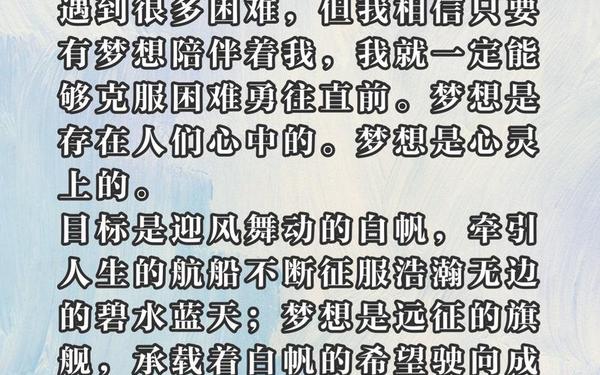 遇到很多困难，但我相信只要
有梦想陪伴着我，我就一定能
够克服困难勇往直前。梦想是
存在人们心中的。梦想是心灵
上的。
目标是迎风舞动的白帆，牵引
人生的航船不断征服浩瀚无边
的碧水蓝天；梦想是远征的旗
舰，承载着白帆的希望驶向成